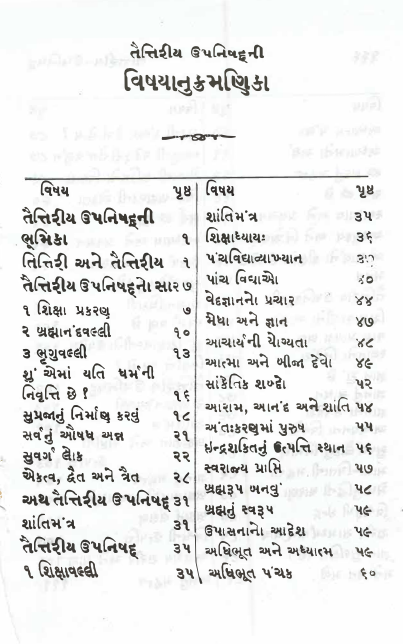 તૈત્તિરીય ઉપનિષદ્દની
વિષયાનુક્રમણિકા
વિષય પૃષ્ઠ
તૈત્તિરીય ઉપનિષદ્દની
ભૂમિકા ૧
તિત્તિરી અને તૈત્તિરીય ૧
તૈત્તિરીય ઉપનિષદ્દનો સાર ૭
૧ શિક્ષા પ્રકરણ ૭
૨ બ્રહ્માનંદવલ્લી ૧૦
૩ ભૃગુવલ્લી ૧૩
શું એમાં યતિ ધર્મની
નિવૃત્તિ છે ? ૧૬
સુપ્રજાનું નિર્માણ કરવું ૧૮
સર્વનું ઔષધ અન્ન ૨૧
સુવર્ગ લોક ૨૨
એકત્વ, દ્વૈત અને ત્રૈત ૨૮
અથ તૈત્તિરીય ઉપનિષદ્દ ૩૧
શાંતિમંત્ર ૩૧
તૈત્તિરીય ઉપનિષદ્દ ૩૫
૧ શિક્ષાવલ્લી ૩૫
વિષય પૃષ્ઠ
શાંતિમંત્ર ૩૫
શિક્ષાધ્યાયઃ ૩૬
પંચવિદ્યાવ્યાખ્યાન
પાંચ વિદ્યાઓ ૪૦
વેદજ્ઞાનનો પ્રચાર ૪૪
મેધા અને જ્ઞાન ૪૭
આચાર્યની યોગ્યતા ૪૮
આત્મા અને બીજા દેવો ૪૯
સાંકેતિક શબ્દો ૫૨
આરામ, આનંદ અને શાંતિ ૫૪
અંતઃકરણમાં પુરુષ ૫૫
ઇન્દ્રશક્તિનું ઉત્પત્તિ સ્થાન ૫૬
સ્વરાજ્ય પ્રાપ્તિ ૫૭
બ્રહ્મરૂપ બનવું ૫૮
બ્રહ્મનું સ્વરૂપ ૫૯
ઉપાસનાનો આદેશ ૫૯
અધિભૂત અને અધ્યાત્મ ૫૯
અધિભૂત પંચક ૬૦